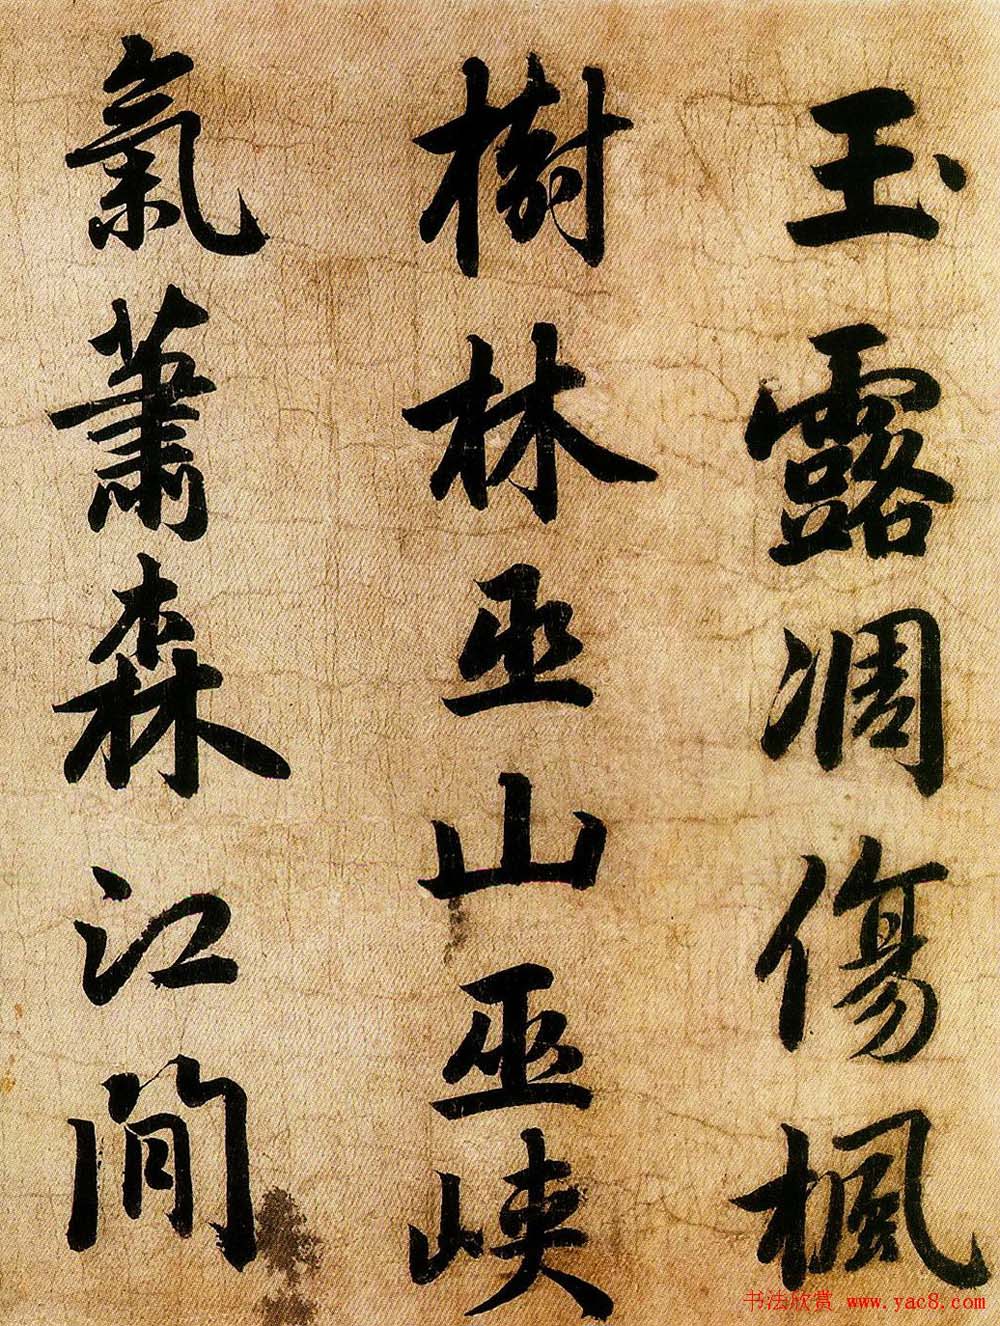 玉露凋傷楓
樹林巫山巫峽
氣蕭森江間
书法欣赏 www.yac8.com